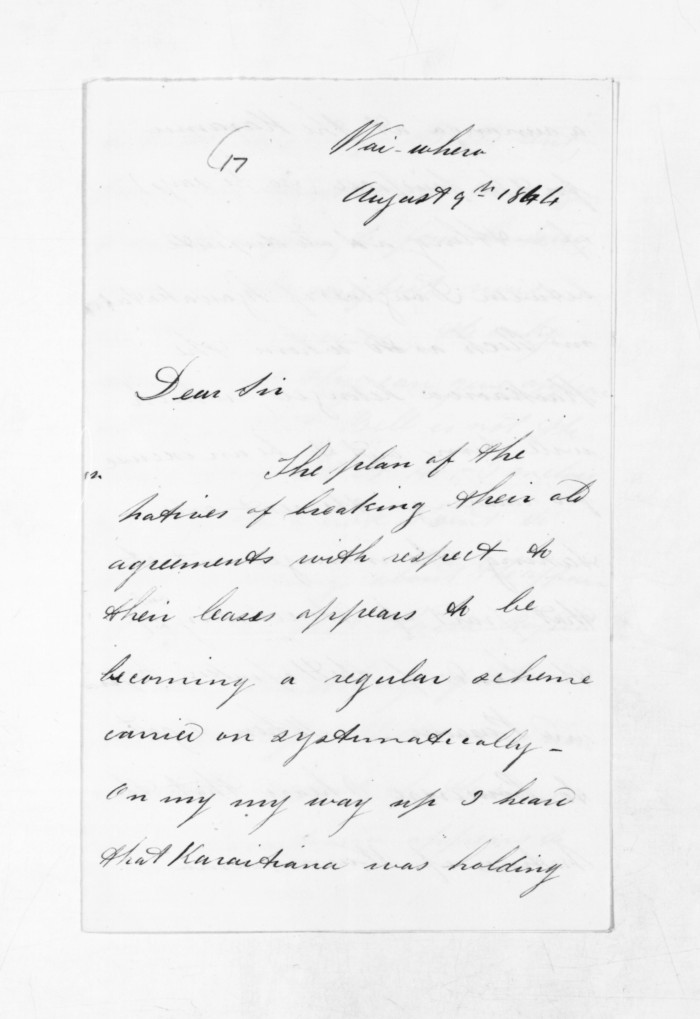 (17
Wai-whero
August 9th 1844
Dear Sir
The plan of the
natives of breaking their old
agreements with respect to
their leases appears to be
becoming a regular scheme
carried on systematically –
On my my way up I heard
that Karaitiana was holding